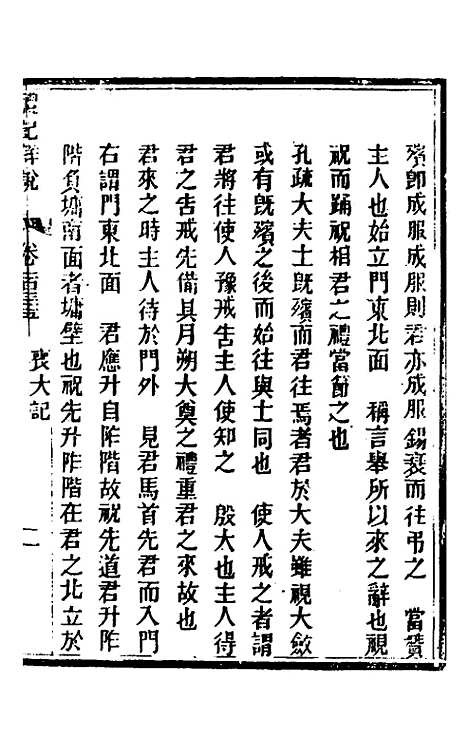 殯卽成服成服則君亦成服錫衰而往弔之　當贊
主人也始立門東北面　稱言舉所以來之辭也視
祝而踊祝相君之禮當節之也
孔疏大夫士旣殯而君往焉者君於大夫雖視大斂
或有旣殯之後而始往與士同也　使人戒之者謂
君將往使人豫戒吿主人使知之　殷大也主人得
君之吿戒先備具月朔大奠之禮重君之來故也
君來之時主人待於門外　見君馬首先君而入門
右謂門東北面　君應升自阼階故祝先道君升阼
階負墉南面者墉壁也祝先升阼階在君之北立於
禮記詳說
卷
喪大記
二